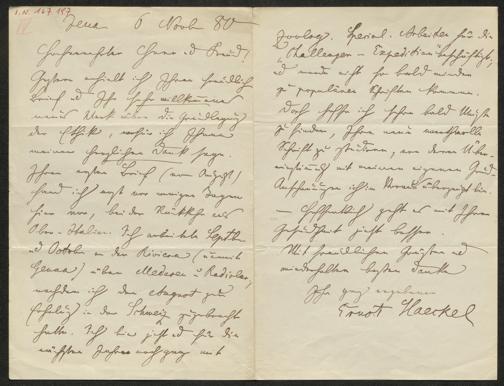 I.N. 167.197
Jena 6 Novb 80
Hochverehrter Herr und Freund!
Gestern erhielt ich Ihren freundlichen
Brief u. Ihr sehr willkommenes
neues Werk über die Grundlegung
der Ethik, wofür ich Ihnen
meinen herzlichsten Dank sage.
Ihren ersten Brief (vom August)
fand ich erst vor wenigen Tagen
hier vor, bei der Rückkehr aus
Ober-Italien. Ich arbeitete Septbr
u. Octobr an der Riviera (unweit
Genua) über Medusen u. Radiolar.,
nachdem ich den August zur
Erholung in der Schweiz zugebracht
hatte. Ich bin jetzt u. für die
nächsten Jahre noch ganz mit
zoolog. Special-Arbeiten für die
„Challenger-Expedition" beschäftigt,
u. werde nicht so bald wieder
zu populären Schriften kommen.
Doch hoffe ich schon bald Muße
zu finden, Ihre neue werthvolle
Schrift zu studiren, von deren Über-
einstimmung mit meinen eigenen Grund-
Anschauungen ich im Voraus überzeugt bin.
— Hoffentlich geht es mit Ihrer
Gesundheit jetzt besser.
Mit freundlichen Grüßen und
wiederholtem besten Danke
Ihr ganz ergebener
Ernst Haeckel